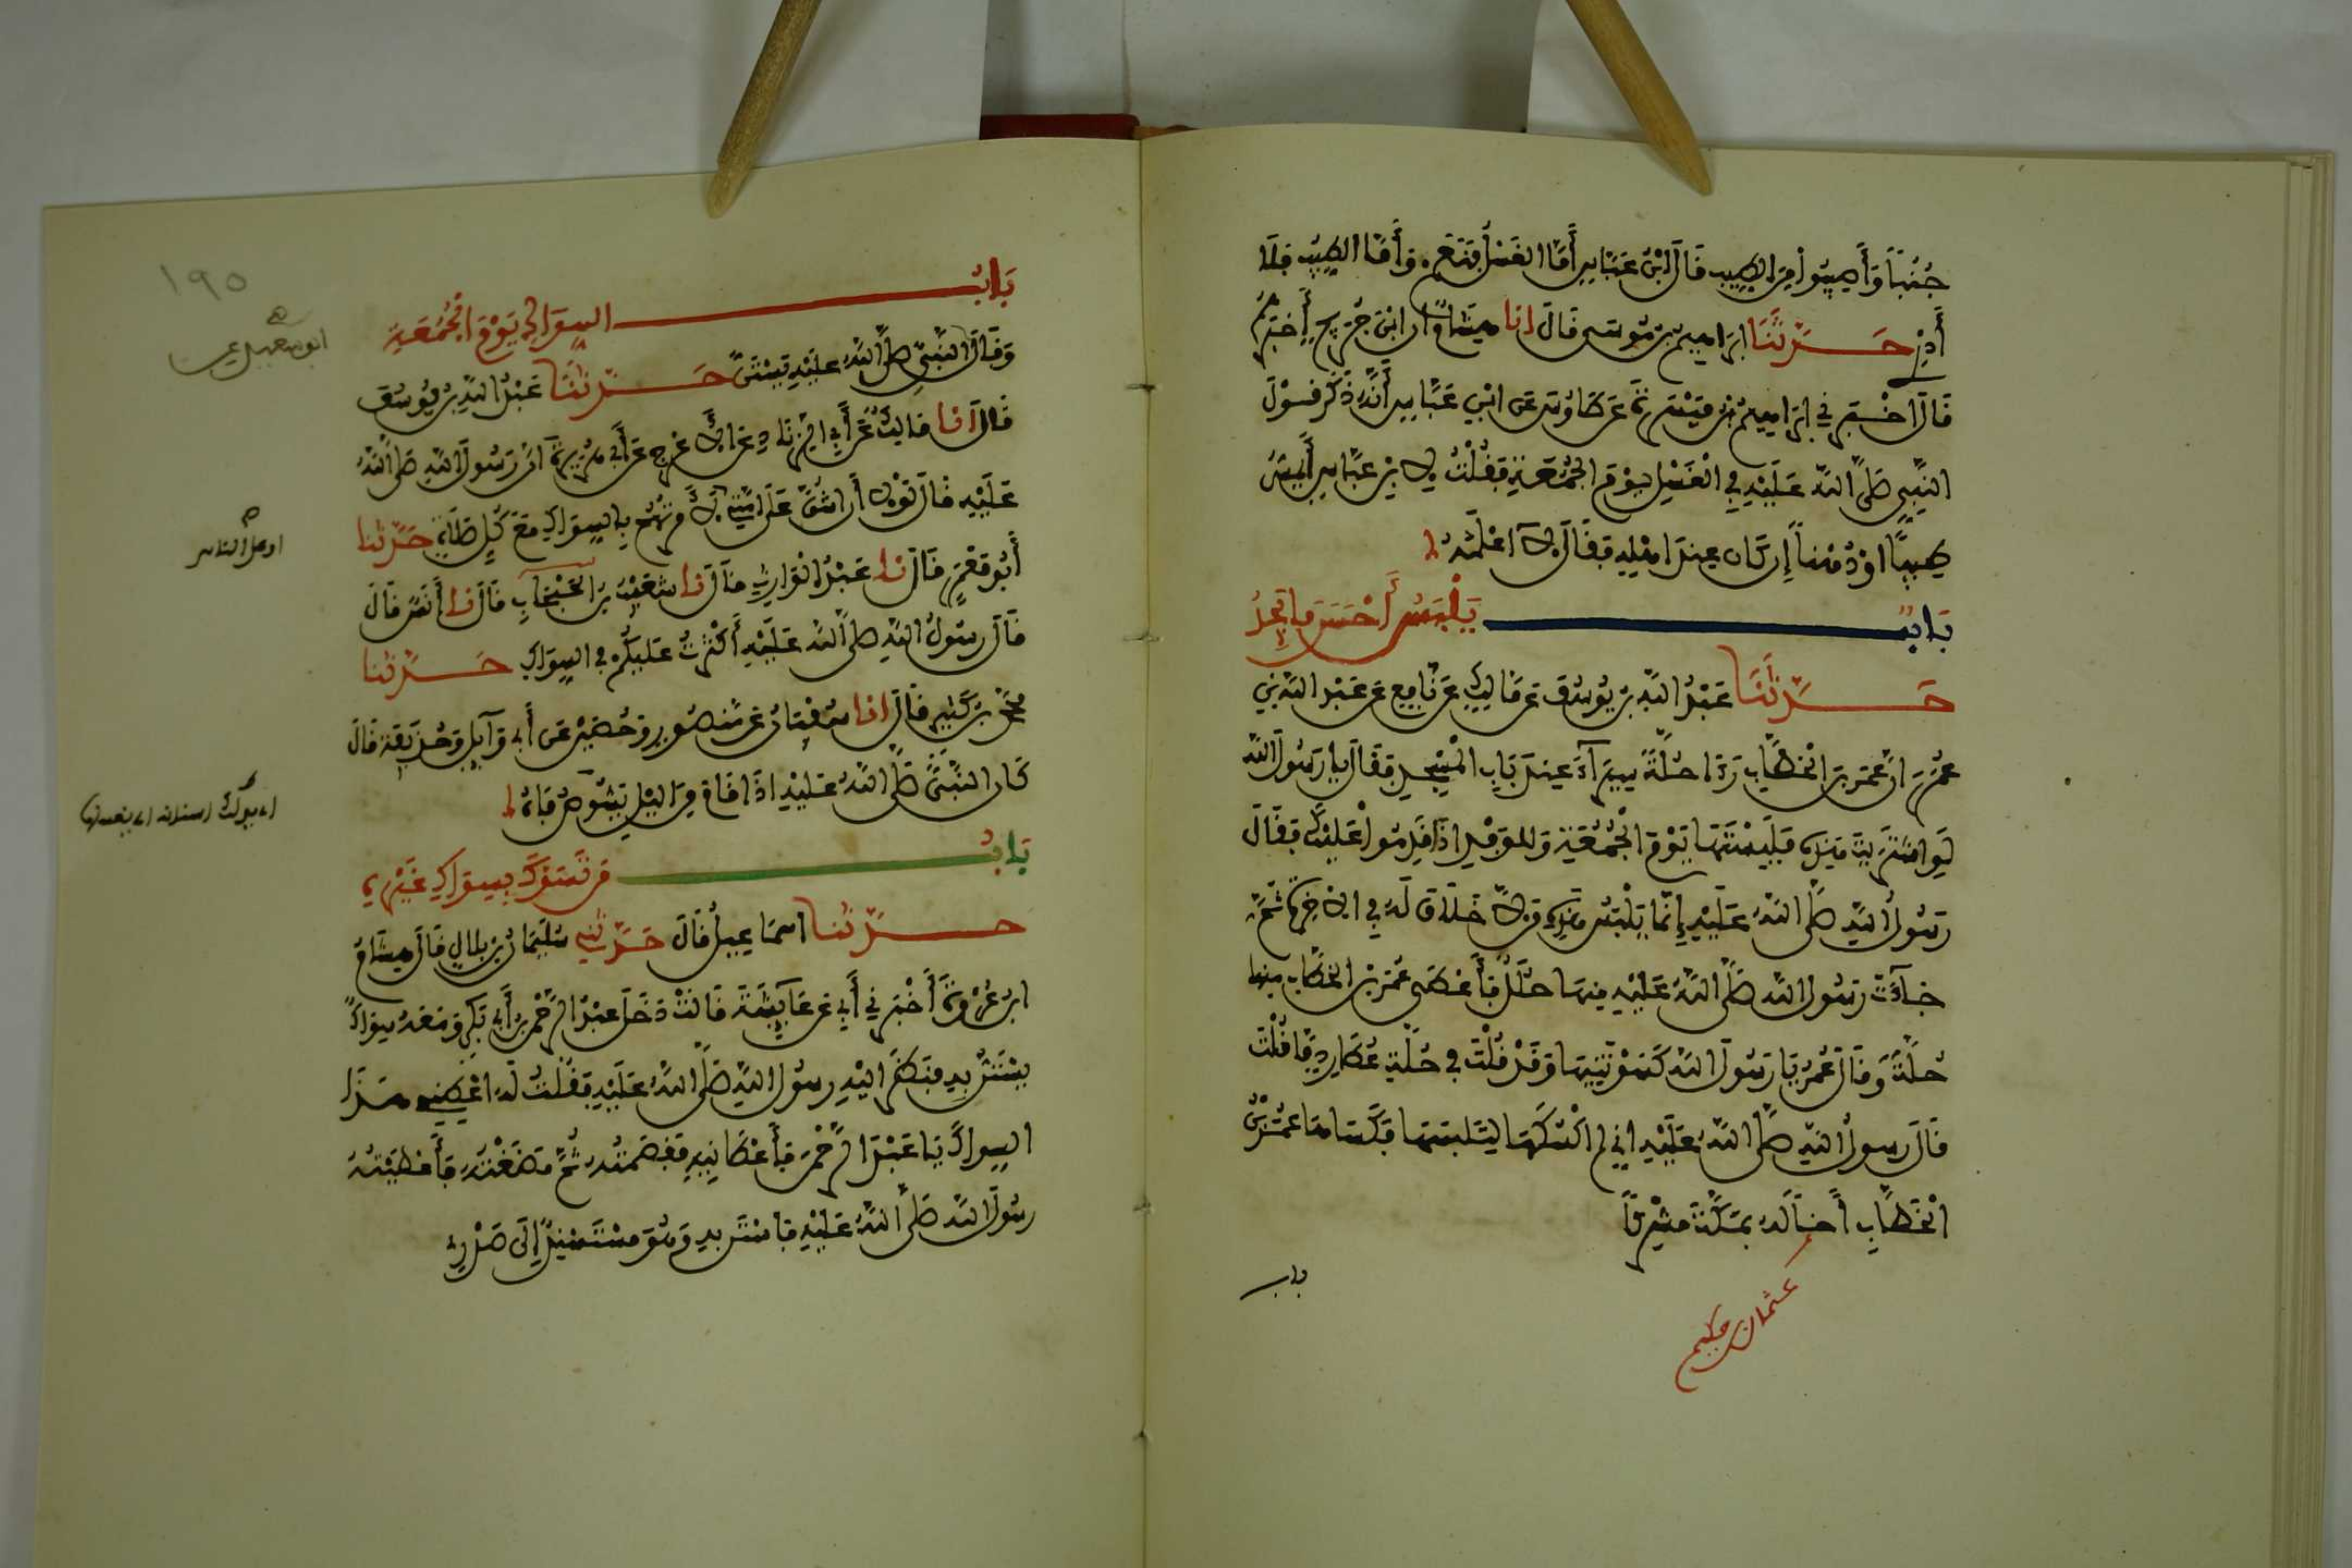 جُنُبًا وَأَصِيبُوا مِنَ الطِّيبِ قَالَ ابْنُ عَبَّاسٍ أَمَّا الغَسْلُ فَنَعَمْ وَأَمَّا الطِّيبُ فَلَا
أَدْرِي حَدَّثَنَا إبراهيم بن موسى قَالَ انا هِشَامٌ ان ابْنَ جُرَيْجٍ أَخْبَرَهُمْ
قَالَ أخْبَرَنِي إبراهِيمُ بْنُ مَيْسَرَةَ عَن طَاوُسٍ عَن ابْنِ عَبَّاسٍ أَنَّهُ ذَكَرَ قَوْلَ
النَّبِيِّ صَلَّى اللَّهُ عَلَيْهِ فِي الْغَسْلِ يَوْمَ الجُمُعَةِ فَقُلْتُ لِابْنِ عَبَّاسٍ أَيَمَسُّ
طِيبًا اوْ دُهْناً إِن كَانَ عِندَ اهْلِهِ فَقَالَ لَا اعْلَمُهُ
بَابٌ يَلْبَسُ أَحْسَنَ مَا يَجِدُ
حَدَّثَنَا عَبْدُ اللَّهِ بن يُوسُفَ عَن مَالِكٍ عَن نَافِعٍ عَن عَبْدِ اللَّهِ بْنِ
عُمَرَ انَّ عُمَرَ بنَ الْخَطَّابِ رَءَا حُلَّةً سِيَرَآءَ عِندَ بَابِ الْمَسْجِدِ فَقَالَ يا رَسُولَ اللَّهِ
لَوِ اشْتَرَيْتَ هَذِهِ فَلَبِسْتَهَا يَوْمَ الْجُمُعَةِ وَلِلْوَفْدِ اذَا قَدِمُوا عَلَيْكَ فَقَالَ
رَسُولُ اللَّهِ صَلَّى اللَّهُ عَلَيْهِ إِنَّمَا يَلْبَسُ هَذِهِ مَن لَّا خَلَاقَ لَهُ فِي الاخِرَةِ ثُمَّ
جَآءَتْ رَسُولَ اللَّهِ صَلَّى اللَّهُ عَلَيْهِ مِنهَا حُلَلٌ فَأَعْطَى عُمَرَ بنَ الخَطَّابِ مِنها
حُلَّةً وَقَالَ عُمَرُ يَا رَسُولَ اللَّهِ كَسَوْتَنِيهَا وَقَدْ قُلْتَ فِي حُلَّةِ عُطَارِدٍ مَّا قُلْتَ
قَالَ رسولُ اللَّهِ صَلَّى اللَّهُ عَلَيْهِ إنِّي لم اكْسُكَهَا لِتَلبَسَهَا فَكَسَاهَا عُمَرُ بْنُ
الْخَطَّابِ أَخًا لَهُ بِمَكَّةَ مُشْرِكًا
باب
بَابُ السِّوَاكِ يَوْمَ الْجُمُعَةِ
وَقَالَ النَّبِيُّ صَلَّى اللَّهُ عَلَيْهِ يَسْتَنُّ حَدَّثَنَا عَبْدُ اللَّهِ بن يُوسُفَ
قَالَ انا مَالِكٌ عَن أَبِي الزِّنَادِ عَنِ الاعْرَجِ عَن أَبِي هُرَيْرَةَ انَّ رَسُولَ اللَّهِ صَلَّى اللَّهُ
عَلَيْهِ قَالَ لَوْلَا أَن اشُقَّ عَلَى امَّتِي لَأَمَرْتُهُمْ بِالسِّوَاكِ مَعَ كُلِّ صَلَاةٍ حَدَّثنا
أَبُو مَعْمَرٍ قَالَ نا عَبْدُ الْوَارِثِ قَالَ نا شُعَيْبُ بنُ الحَبْحَابِ قَالَ نا أَنَسٌ قَالَ
قَالَ رسُولُ اللَّهِ صَلَّى اللَّهُ عَلَيْهِ أَكْثَرْتُ عَلَيكُمْ فِي السِّوَاكِ حَدَّثنا
مُحَمَّدُ بنُ كَثِيرٍ قَالَ انا سُفْيَانُ عَن مَّنصُورٍ وَحُصَيْنٍ عَن أَبِي وَآئِلٍ عَن حُذَيْفَةَ قَالَ
كَانَ النَّبِيُّ صَلَّى اللَّهُ عَلَيْهِ اذَا قَامَ مِنَ اليْلِ يَشُوصُ فَاهُ
بَابُ مَن تَسَوَّكَ بِسِوَاكِ غَيْرِهِ
حَدَّثنا اسمَاعِيلُ قَالَ حَدَّثَنِي سُلَيْمَانُ بْنُ بِلَالٍ قَالَ هِشَامُ
ابنُ عُرْوَةَ أَخْبَرَنِي أَبِي عَن عَآئِشَةَ قَالَتْ دَخَلَ عَبْدُ الرَّحْمَنِ بنُ أَبِي بَكْرٍ وَمَعَهُ سِوَاكٌ
يَسْتَنُّ بِهِ فَنَظَرَ الَيْهِ رسُولُ اللَّهِ صَلَّى اللَّهُ عَلَيْهِ فَقُلْتُ لَهُ اعْطِنِي هَذَا
السِّوَاكَ يَا عَبْدَ الرَّحْمَنِ فَأَعْطَانِيهِ فَقَصَمْتُهُ ثُمَّ مَضَغْتُهُ فَأَعْطَيْتُهُ
رسُولَ اللَّهِ صَلَّى اللَّهُ عَلَيْهِ فَاسْتَنَّ بِهِ وَهُوَ مُسْتَسْنِدٌ إِلَى صَدْرِي
١٩٥
او على الناس